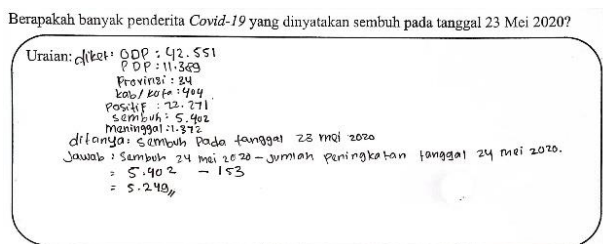 Berapakah banyak penderita Covid-19 yang dinyatakan sembuh pada tanggal 23 Mei 2020?
Uraian: diket: ODP : 42.551
PDP : 11.389
Provinsi : 34
kab/kota : 404
Positif : 22.271
sembuh : 5.402
meninggal : 1.372
ditanya : sembuh pada tanggal 23 mei 2020
Jawab : Sembuh 24 mei 2020 - Jumlah peningkatan tanggal 24 mei 2020.
= 5.402 - 153
= 5.249,,